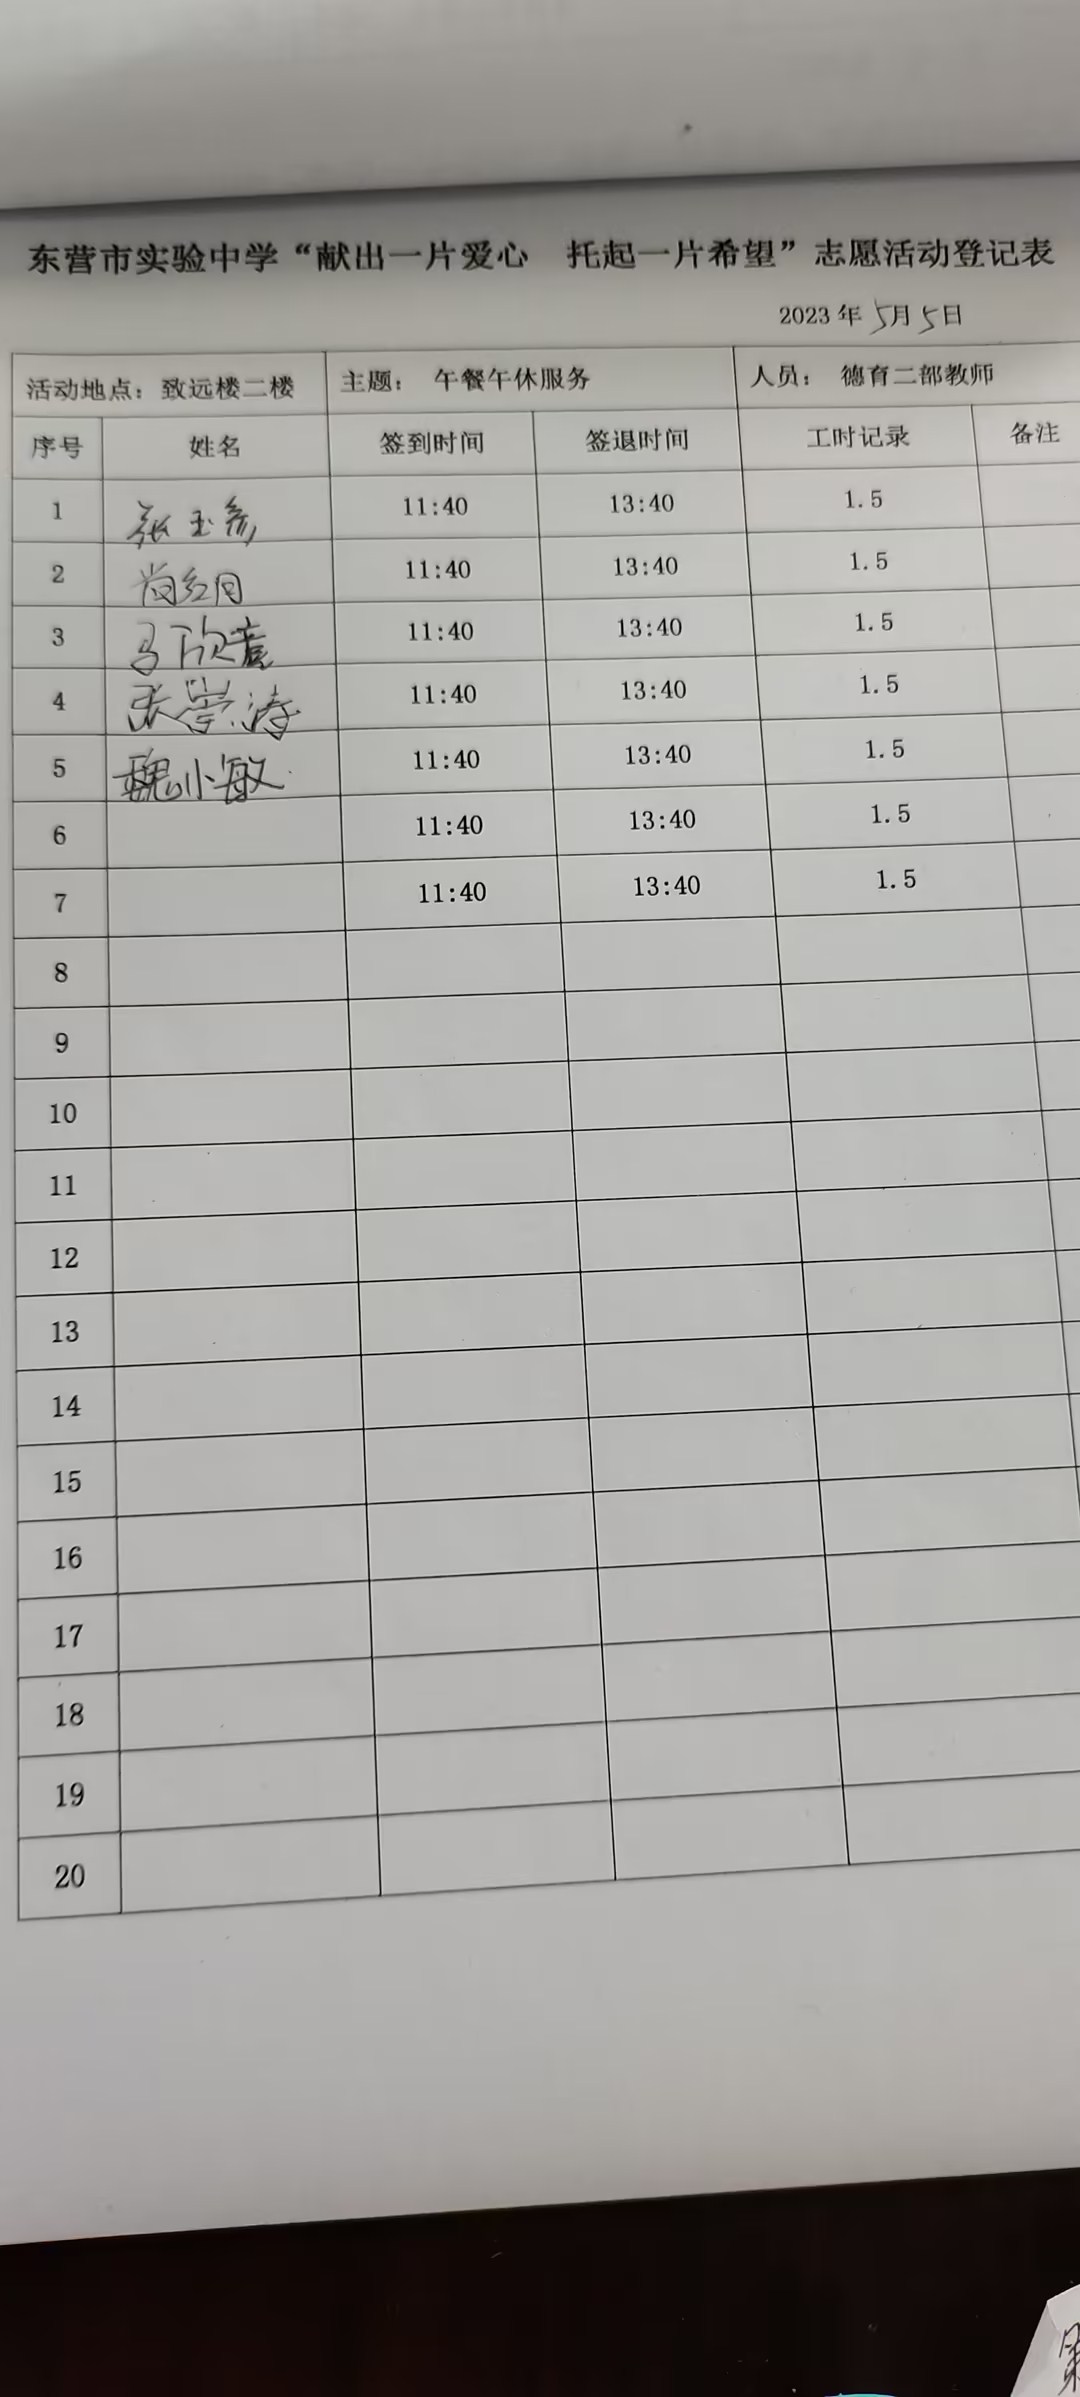 东营市实验中学“献出一片爱心 托起一片希望”志愿活动登记表
2023年5月5日
活动地点：致远楼二楼 主题： 午餐午休服务 人员： 德育二部教师
序号 姓名 签到时间 签退时间 工时记录 备注
1 张玉 11:40 13:40 1.5
2 尚红 11:40 13:40 1.5
3 马欣 11:40 13:40 1.5
4 张崇涛 11:40 13:40 1.5
5 魏小敏 11:40 13:40 1.5
6 11:40 13:40 1.5
7 11:40 13:40 1.5
8
9
10
11
12
13
14
15
16
17
18
19
20